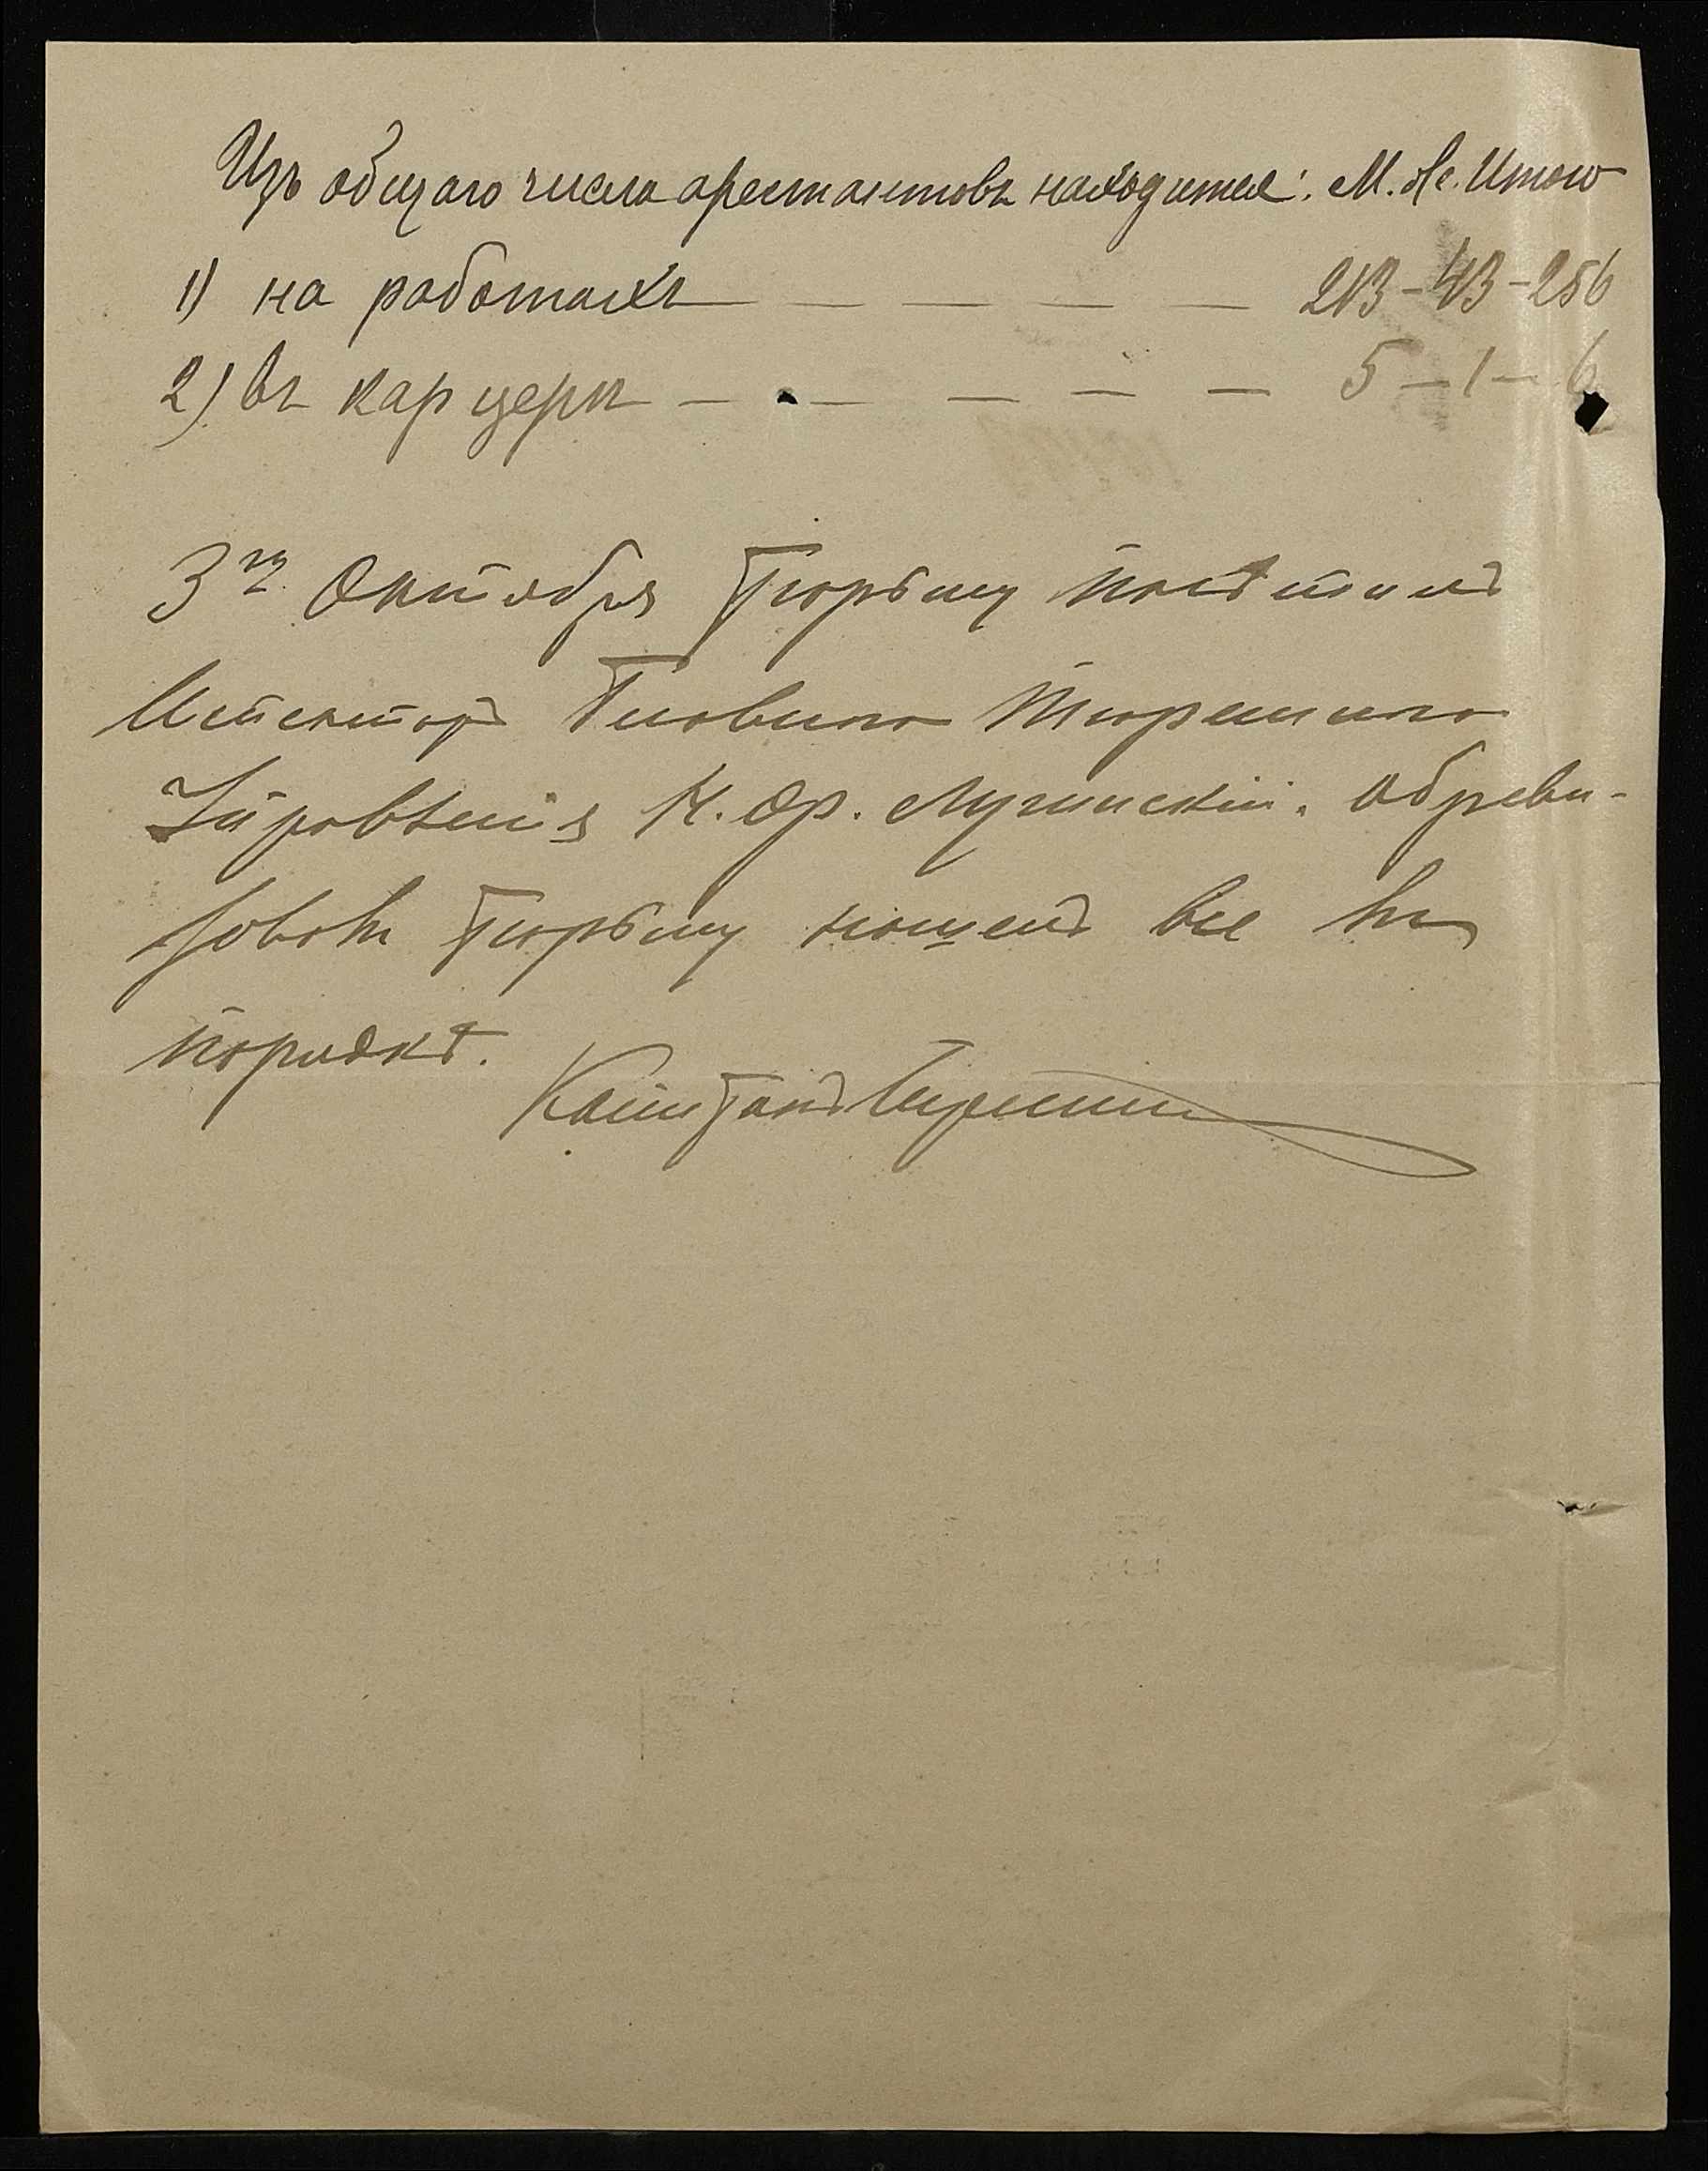 Изъ общаго числа арестантовъ находится: М. Ж. Итого
1) на работахъ — — — — — 213 – 43 – 256
2) въ карцерѣ — — — — — 5 – 1 – 6
3го Октября Тюрьму посѣтилъ
Инспекторъ Главнаго Тюремнаго
Управленія К. Ф. Лучинскій. Обреви-
зовавъ Тюрьму нашелъ все въ
порядкѣ.
Капитанъ